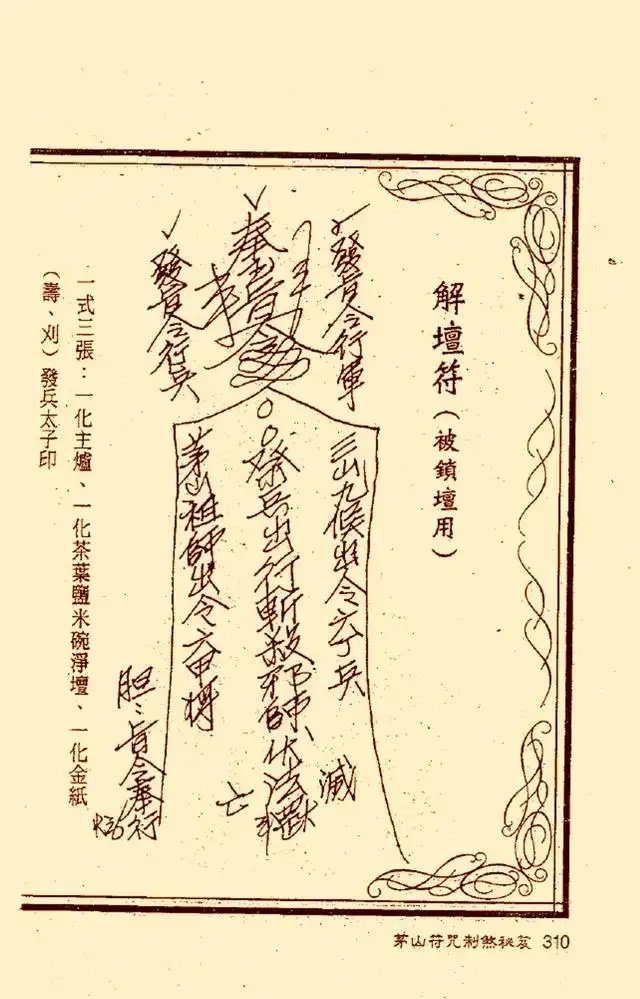 解壇符（被鎖壇用）
發旨令行軍
奉
旨令
發旨令行兵
三山九侯出令六丁兵
發兵出行斬殺邪師伏法
滅
亡
茅山祖師出令六甲將
旨令奉行
一式三張：一化主爐、一化茶葉鹽米碗淨壇、一化金紙
（壽、刈）發兵太子印
茅山符咒制煞秘笈 310